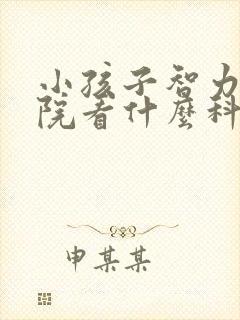 小孩子智力
院看什麼科
申某某